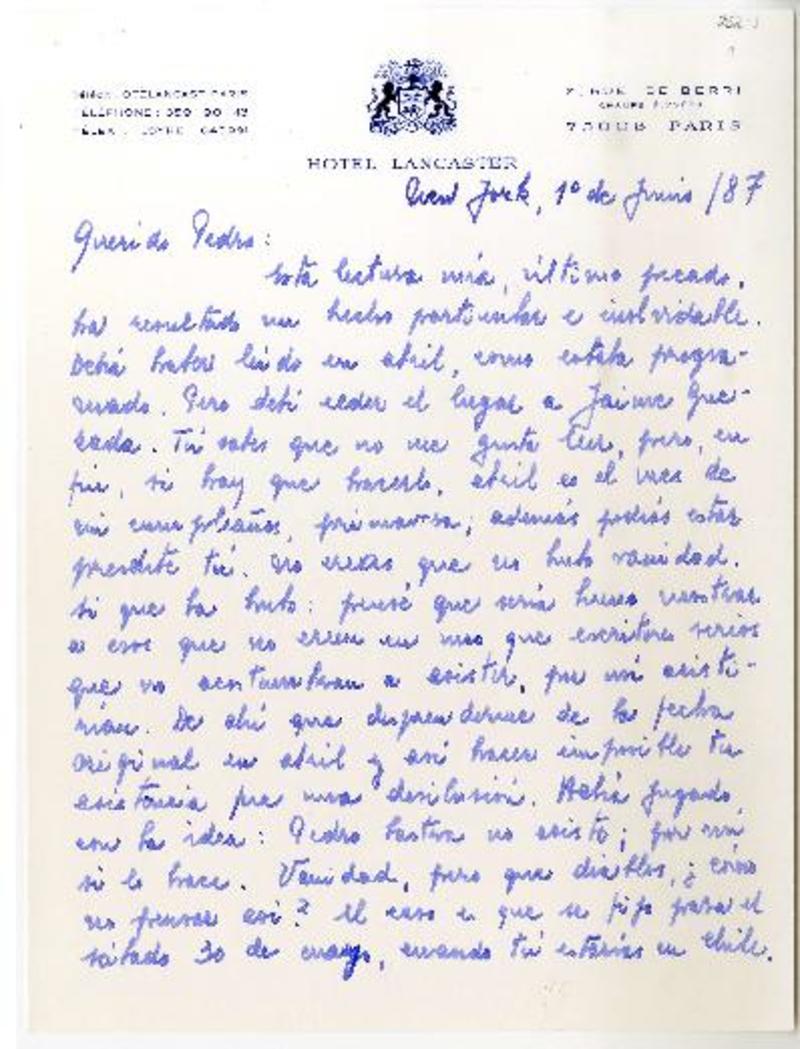 HOTEL LANCASTER
7, RUE DE BERRI
CHAMPS ÉLYSÉES
75008 PARIS
New York, 1º de Junio / 87
Querido Pedro:
Esta lectura mía, último pecado,
ha resultado un hecho particular e inolvidable.
Debía haber leído en abril, como estaba progra-
mado. Pero debí ceder el lugar a Jaime Que-
zada. Tú sabes que no me gusta leer, pero, en
fin, si hay que hacerlo, abril es el mes de
mi cumpleaños, primavera; además podrías estar
presente tú. No creas que no hubo vanidad.
Si que la hubo: pensé que sería bueno mostrar
a esos que no creen en uno que escritores serios
que no acostumbran a asistir, por mí asisti-
rían. De ahí que desprenderme de la fecha
original en abril y así hacer imposible tu
asistencia fue una desilusión. Había jugado
con la idea: Pedro Lastra no asiste; por mí
si lo hace. Vanidad, pero que diablos, ¿cómo
no pensar así? El caso es que se fijó para el
sábado 30 de mayo, cuando tú estarías en Chile.